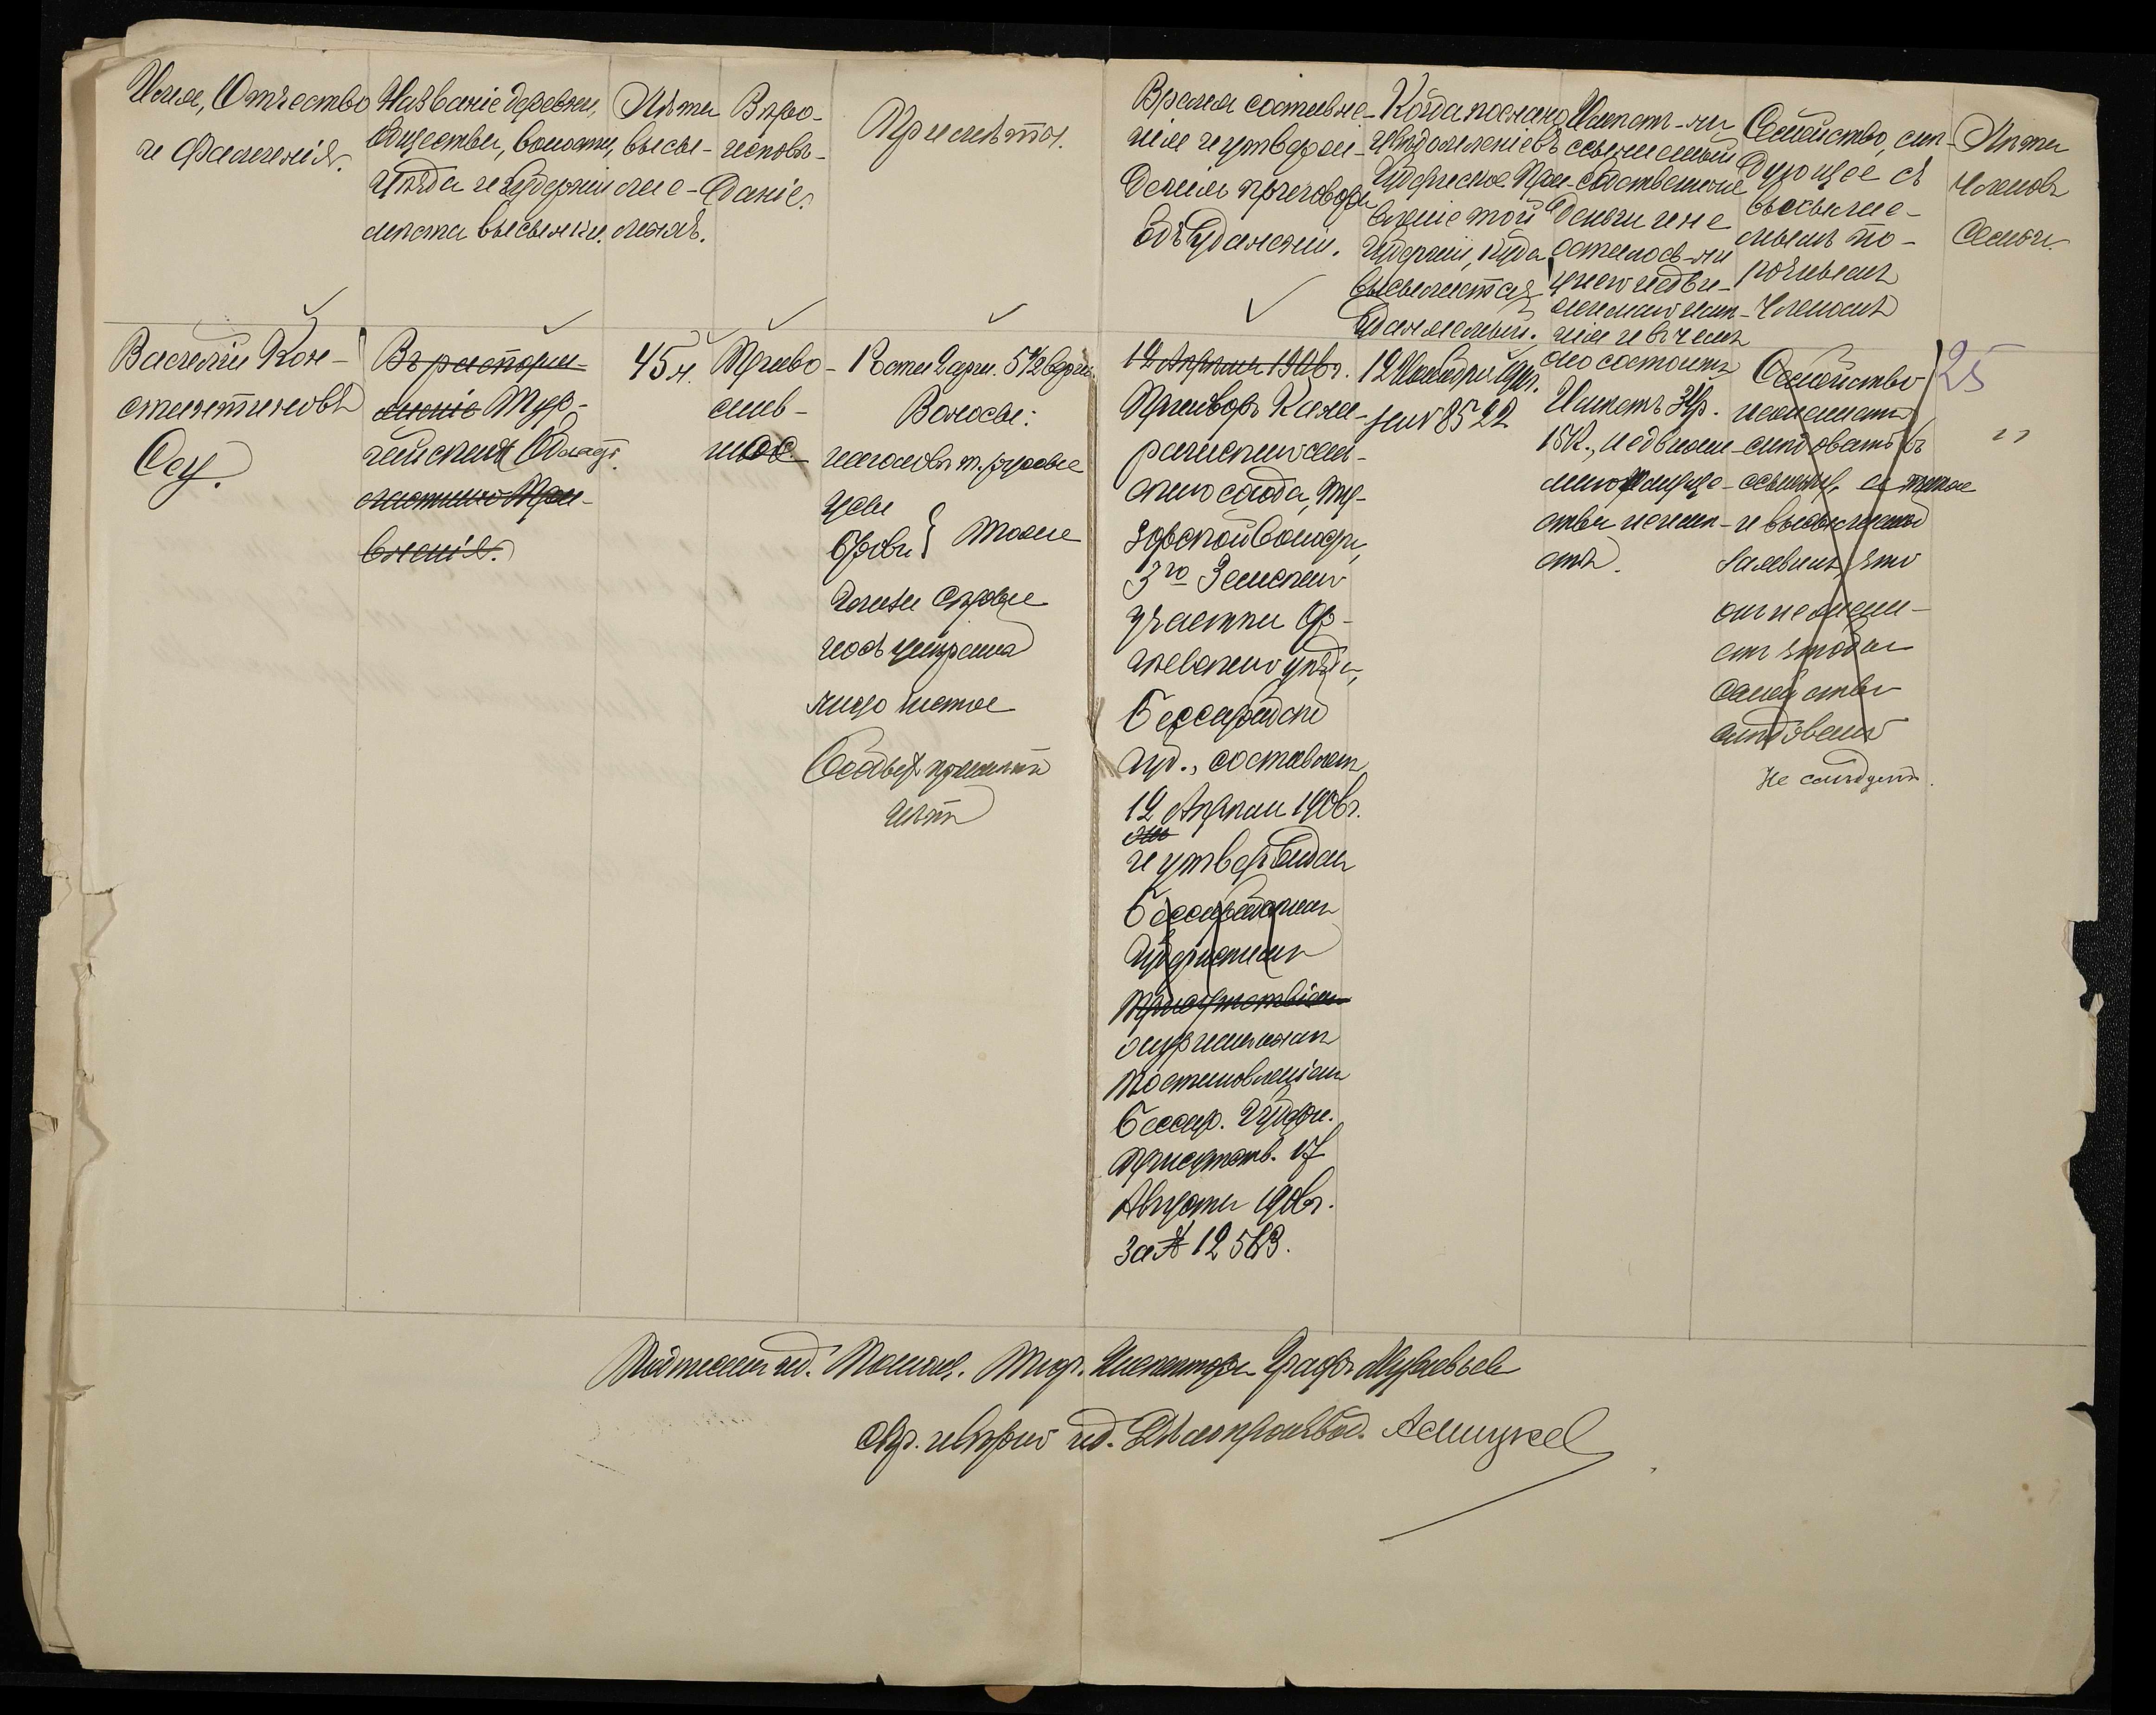 Имя, Отчество
и Фамилія.
Названіе деревни,
Общества, волости,
Уѣзда и Губерніи
мѣста высылки.
Лѣта
высы-
лае-
мыхъ.
Вѣро-
исповѣ-
даніе.
Примѣты.
Время составле-
нія и утверж-
денія приговора
объ удаленіи.
Когда послано
увѣдомленіе въ
Губернское Прав-
леніе той
Губерніи, куда
высылается
удаляемый.
Имѣетъ-ли
ссылаемый
собственныя
деньги и не
осталось-ли
у него недви-
жимаго имѣ-
нія и въ чемъ
оно состоитъ
Семейство, слѣ-
дующее съ
высылае-
мымъ по-
рочнымъ
членомъ
Лѣта
членовъ
семьи.
Василій Кон-
стантиновъ
Осу.
Въ распоря-
женіе Тур-
гайскаго Област.
ластного Пра-
вленія.
45 л.
Право-
слав-
ное.
Ростъ 2 арш. 5 1/2 верш.
Волосы:
на головѣ т. русые
усы
брови } тоже
глаза сѣрые
носъ умѣренный
лицо чистое
Особыхъ примѣтъ
нѣтъ
12 Апрѣля 1906 г.
Приговоръ Кама-
ровскаго сель-
скаго схода,
волости,
3го Земскаго
участка Ор-
гѣевскаго уѣзда,
Бессарабской
губ., составленъ
12 Апрѣля 1906 г.
и утвержденъ
Бессарабскимъ
Губернскимъ
Присутствіемъ
журнальнымъ
постановленіемъ
Бессар. Губерн.
Присутств. 17
Августа 1906 г.
за № 12563.
12 Ноября 1906 г.
за № 8522
Имѣетъ 3 р.
15 к., недвижи-
маго имуще-
ства не имѣ-
етъ.
Семейство
не желаетъ
слѣдовать въ
ссылку, а также
и высылаемый
заявилъ, что
онъ не жела-
етъ чтобы
семейство
слѣдовало
Не слѣдуетъ.
25
"
Подписалъ: и. д. Помощ. Тюр. Инспектора Графъ Муравьевъ
Съ п. вѣрно: и. д. Дѣлопроизвод.